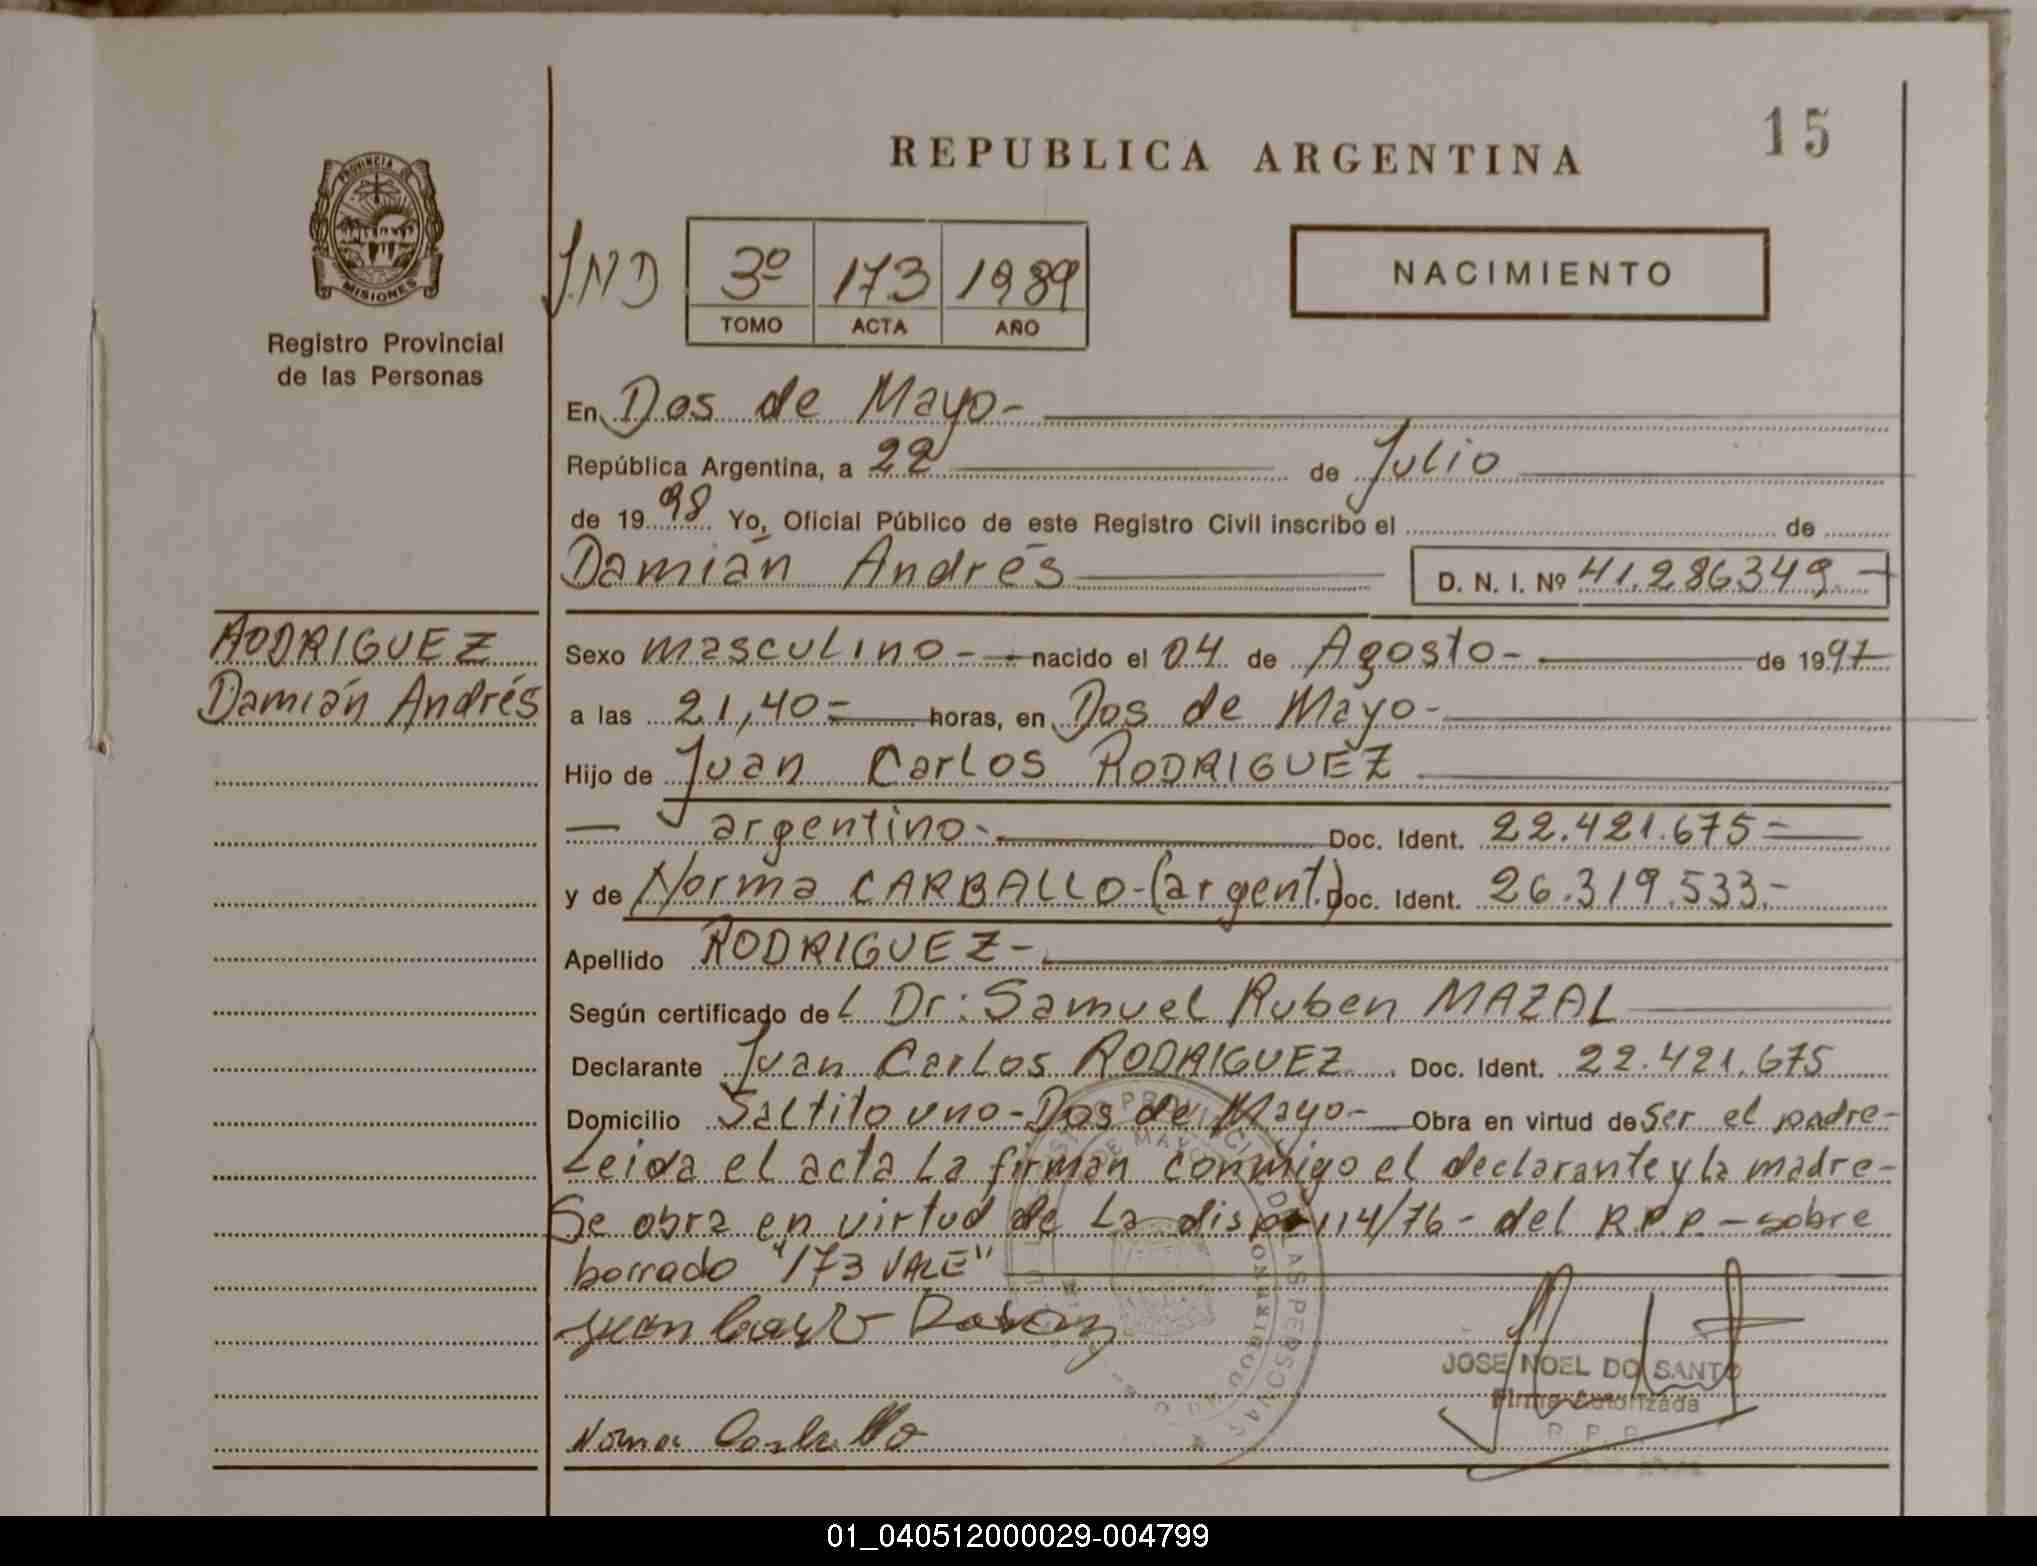 15
REPUBLICA ARGENTINA
PROVINCIA DE
MISIONES
Registro Provincial
de las Personas
3º 173 1989
TOMO ACTA AÑO
NACIMIENTO
En Dos de Mayo-
República Argentina, a 22 de Julio
de 1998 Yo, Oficial Público de este Registro Civil inscribo el de
Damián Andrés D. N. I. Nº 41.286349.-
RODRIGUEZ
Damián Andrés
Sexo masculino- nacido el 04 de Agosto- de 1997
a las 21,40= horas, en Dos de Mayo-
Hijo de Juan Carlos RODRIGUEZ
— argentino- Doc. Ident. 22.421.675=
y de Norma CARBALLO-(argent.) Doc. Ident. 26.319.533.-
Apellido RODRIGUEZ-
Según certificado del Dr: Samuel Ruben MAZAL
Declarante Juan Carlos RODRIGUEZ Doc. Ident. 22.421.675
Domicilio Saltito uno-Dos de Mayo- Obra en virtud de ser el padre-
Leida el acta la firman conmigo el declarante y la madre-
Se obra en virtud de la disp 114/76- del R.P.P.-sobre
borrado "173 VALE"
Juan
JOSE NOEL DO SANTO
Firma Autorizada
R. P. P.
Norma Carballo
01_040512000029-004799